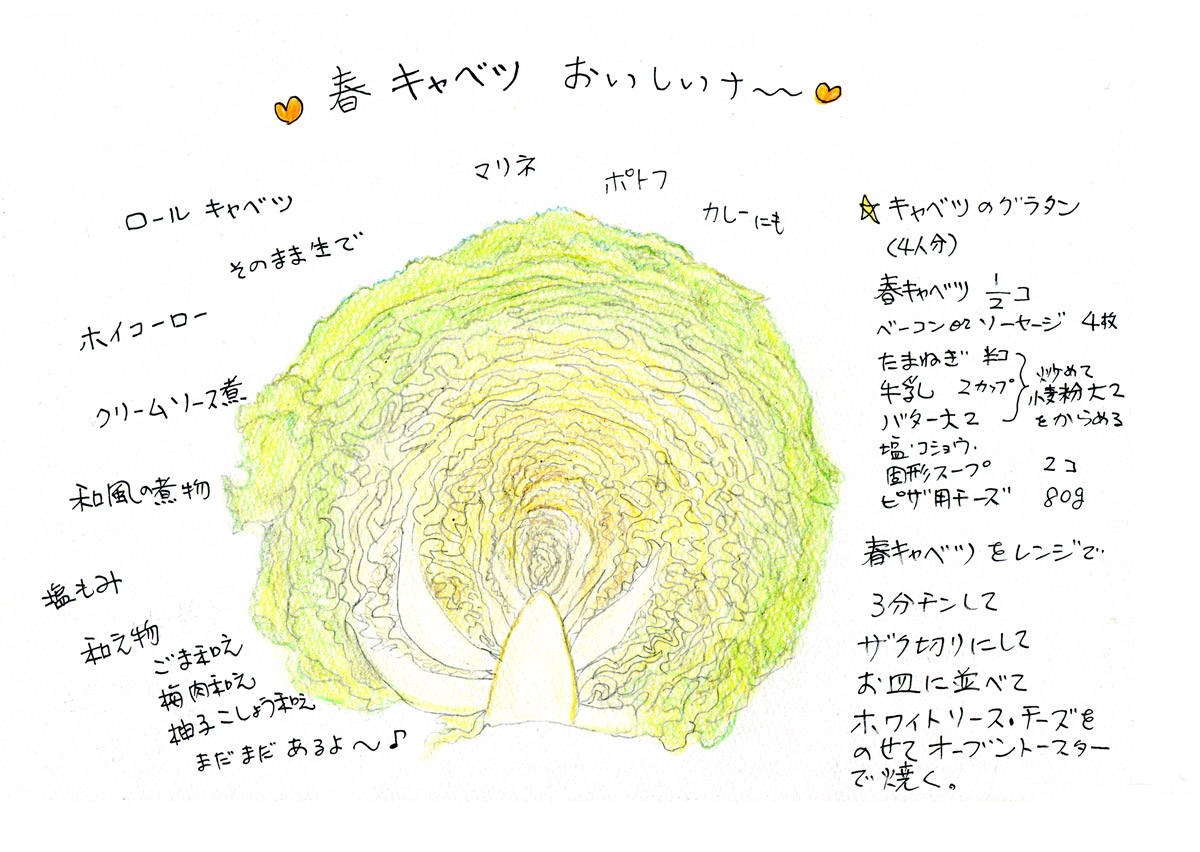 春キャベツ おいしいナ〜〜
マリネ
ポトフ
カレーにも
ロールキャベツ
そのまま生で
ホイコーロー
クリームソース煮
和風の煮物
塩もみ
和え物
ごま和え
梅肉和え
柚子こしょう和え
まだまだあるよ〜♪
☆キャベツのグラタン
(4人分)
春キャベツ 1/2コ
ベーコンorソーセージ 4枚
たまねぎ 半コ
牛乳し 2カップ
バター大2
炒めて
小麦粉大2
をからめる
塩・コショウ・
固形スープ 2コ
ピザ用チーズ 80g
春キャベツをレンジで
3分チンして
ザク切りにして
お皿に並べて
ホワイトソース・チーズを
のせてオーブントースター
で焼く。